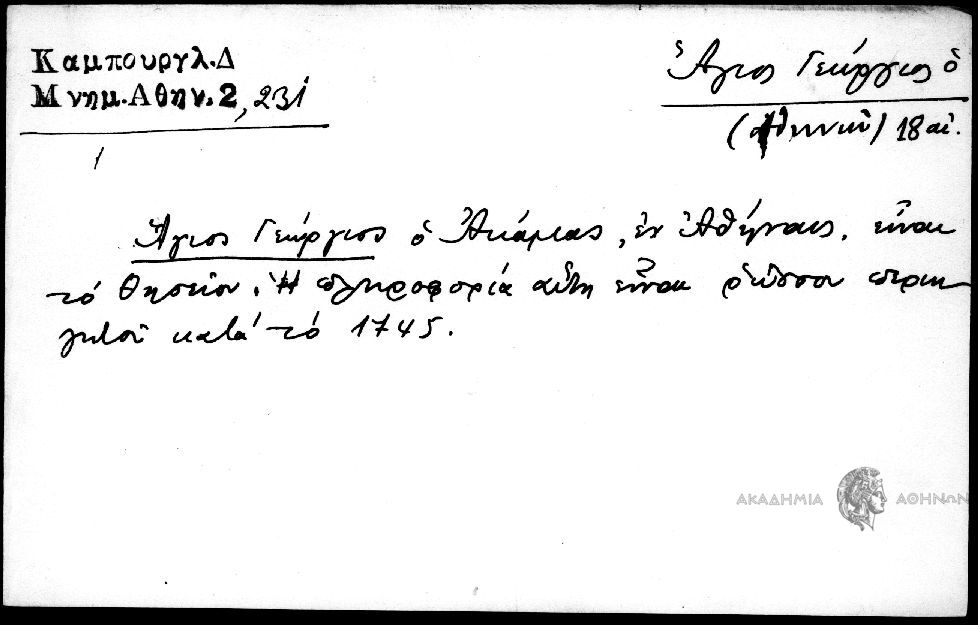 Καμπουργλ.Δ
Μνημ.Αθην.2, 231
Ἅγιος Γεώργιος ὁ
(Ἀθηνῶν) 18 αἰ.
1
Ἅγιος Γεώργιος ὁ Ἀκάμας, ἐν Ἀθήναις, εἶναι
τό Θησεῖον. Ἡ πληροφορία αὕτη εἶναι ρώσσου περιη
γητοῦ κατά τό 1745.
ΑΚΑΔΗΜΙΑ ΑΘΗΝΩΝ